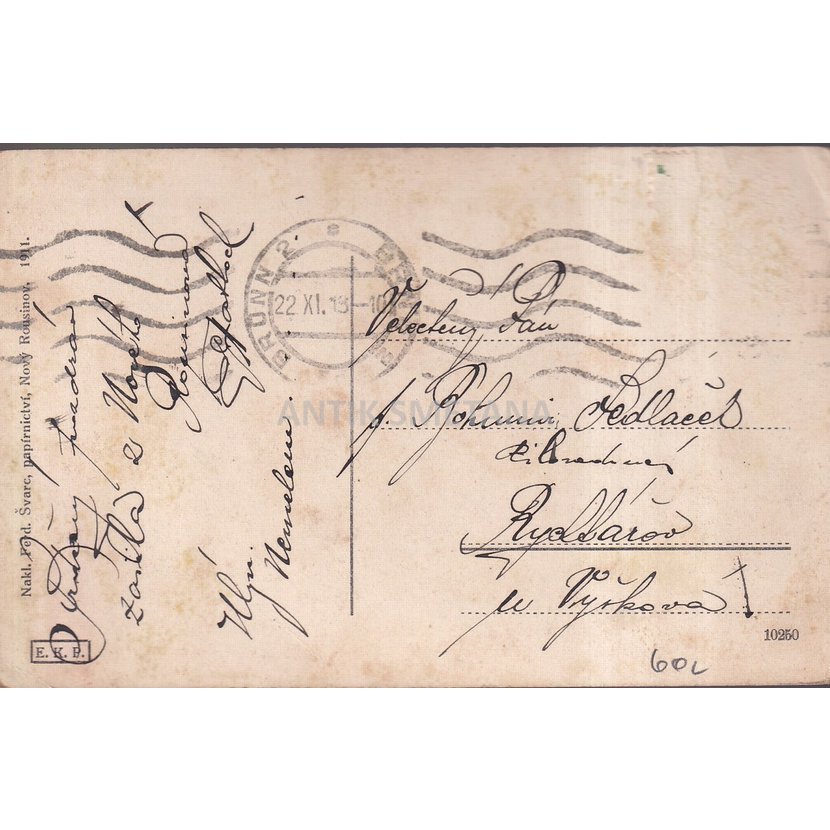 Nakl. Ferd. Švarc, papírnictví, Nový Rousínov, 1911.
E. K. P.
Srdečný pozdrav
zasílá z Nového
Rousínova
Hyn.
BRÜNN 2
22 XI. 13–10
Veloctěný Pán
p. Bohumil Sedláček
Rychtářov
u Vyškova!
10250
60,-
ANTIK SMETANA